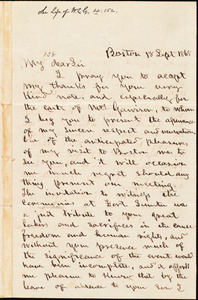 See Life of W.L.G. 4:152.
Boston 18 Sept. 186
My dear Sir
I pray you to accept
my thanks for your very
kind note and especially for
the carte of Mrs Garrison, to whom
I beg you to present the assurance
of my sincere respect and veneration
One of the anticipated pleasures
of my visit to Boston was to
see you, and it will occasion
me much regret should any
thing prevent our meeting.
The invitation to witness the
ceremonies at Fort Sumter was
a just tribute to your great
labors and sacrifices in the cause
freedom and human rights, and
without your presence much of
the significance of the event would
have been incomplete, and it added
me pleasure to know that by the
leave of absence to you Gen. I